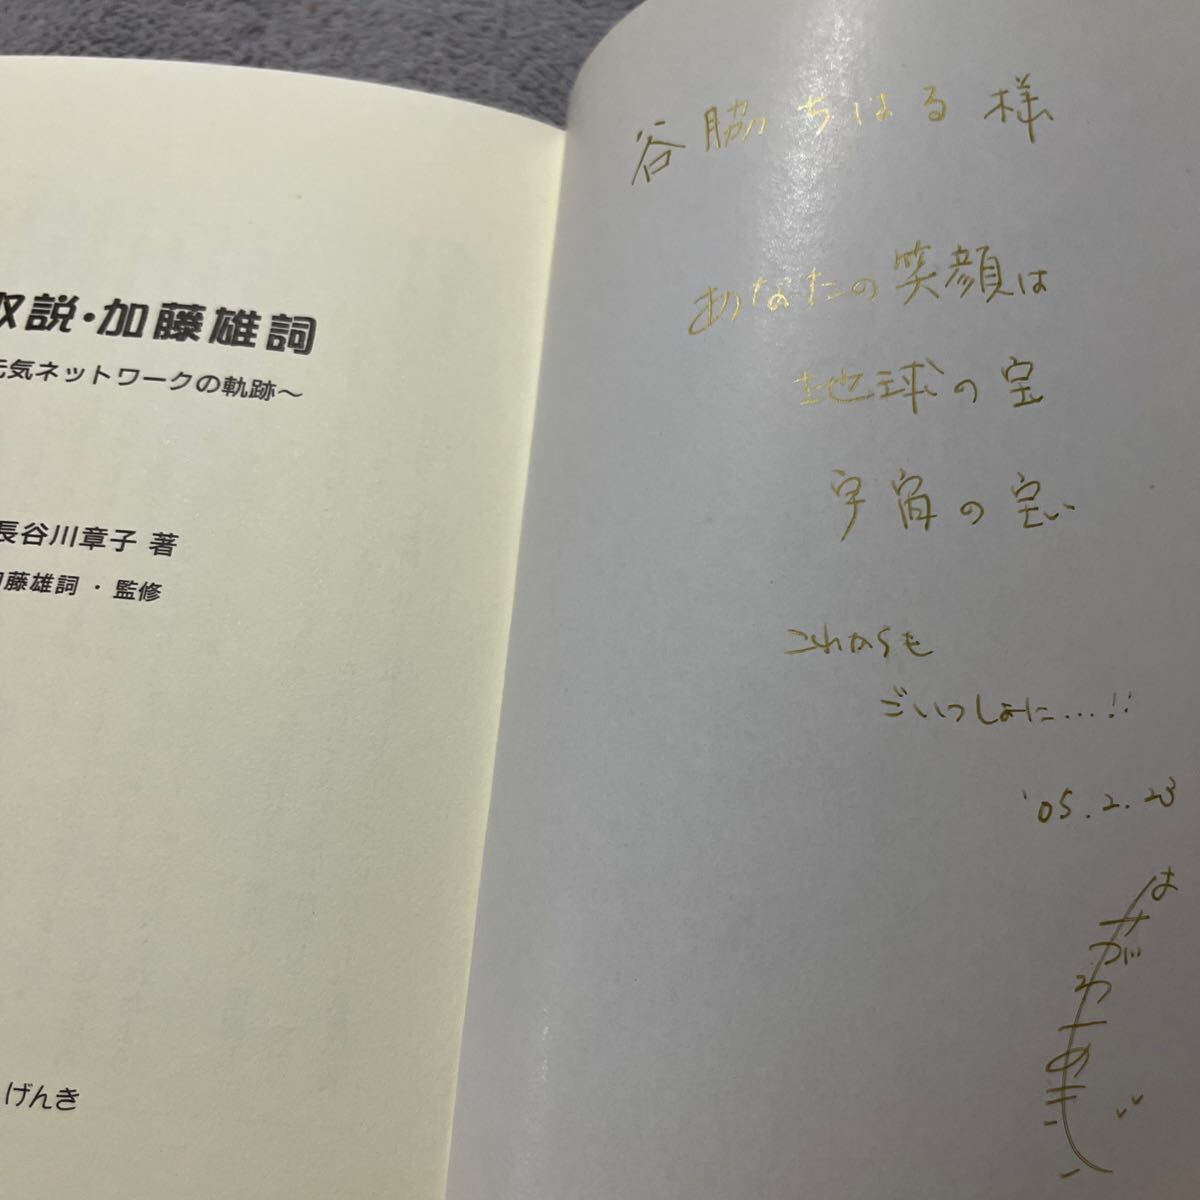 取説・加藤雄詞
元気ネットワークの軌跡～
長谷川章子 著
加藤雄詞・監修
げんき
谷脇ちはる様
あなたの笑顔は
地球の宝
宇宙の宝
これからも
ごいっしょに…!!
'05.2.23
はせがわあきこ